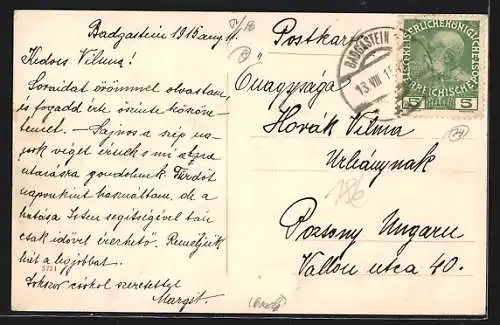 Badgastein 1915 aug 11.
Kedves Vilma!
Soraidat örömmel olvastam,
és fogadd érte őszinte köszöne-
temet. – Sajnos a szép na-
pok véget érnek s mi
utazásra gondolunk. Fürdőt
naponkint használtam, de a
hatása Isten segitségével tán
csak idővel érezhető. Reméljük
hát a legjobbat.
Sokszor csókol szeretettel
Margit.
5721
Postkarte
BADGASTEIN
13. VIII 15
KAISERLICHE KÖNIGLICHE
ÖSTERREICHISCHE
5 HELLER 5
Őnagysága
Horák Vilma
Urleánynak
186
Pozsony Ungarn
Vallon utca 40.